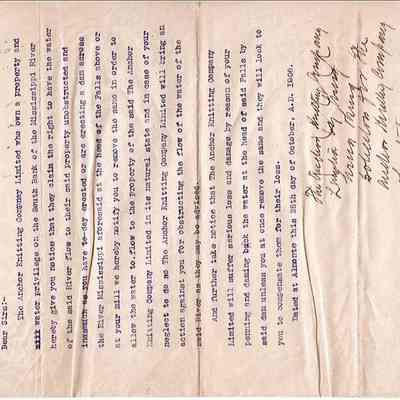 Dear Sirs:-
The Anchor Knitting Company Limited who own a property and
mill water privilege on the South Bank of the Mississippi River
hereby give you notice that they claim the right to have the water
of the said River flow to their said property unobstructed and
inasmuch as you have to-day erected or are erecting a dam across
the River Mississippi aforesaid at the Head of the Falls above or
at your mill we hereby notify you to remove the same in order to
allow the water to flow to the property of the said The Anchor
Knitting Company Limited in its natural state and in case of your
neglect to do so The Anchor Knitting Company Limited will bring an
action against you for obstructing the flow of the water of the
said River as they may be advised.
And further take notice that The Anchor Knitting Company
Limited will suffer serious loss and damage by reason of your
penning and daming back the water at the head of said Falls by
said dam unless you at once remove the same and they will look to
you to compensate them for their loss.
Dated at Almonte this 25th day of October, A.D. 1906.
The Anchor Knitting Company
Limited
for the
Company